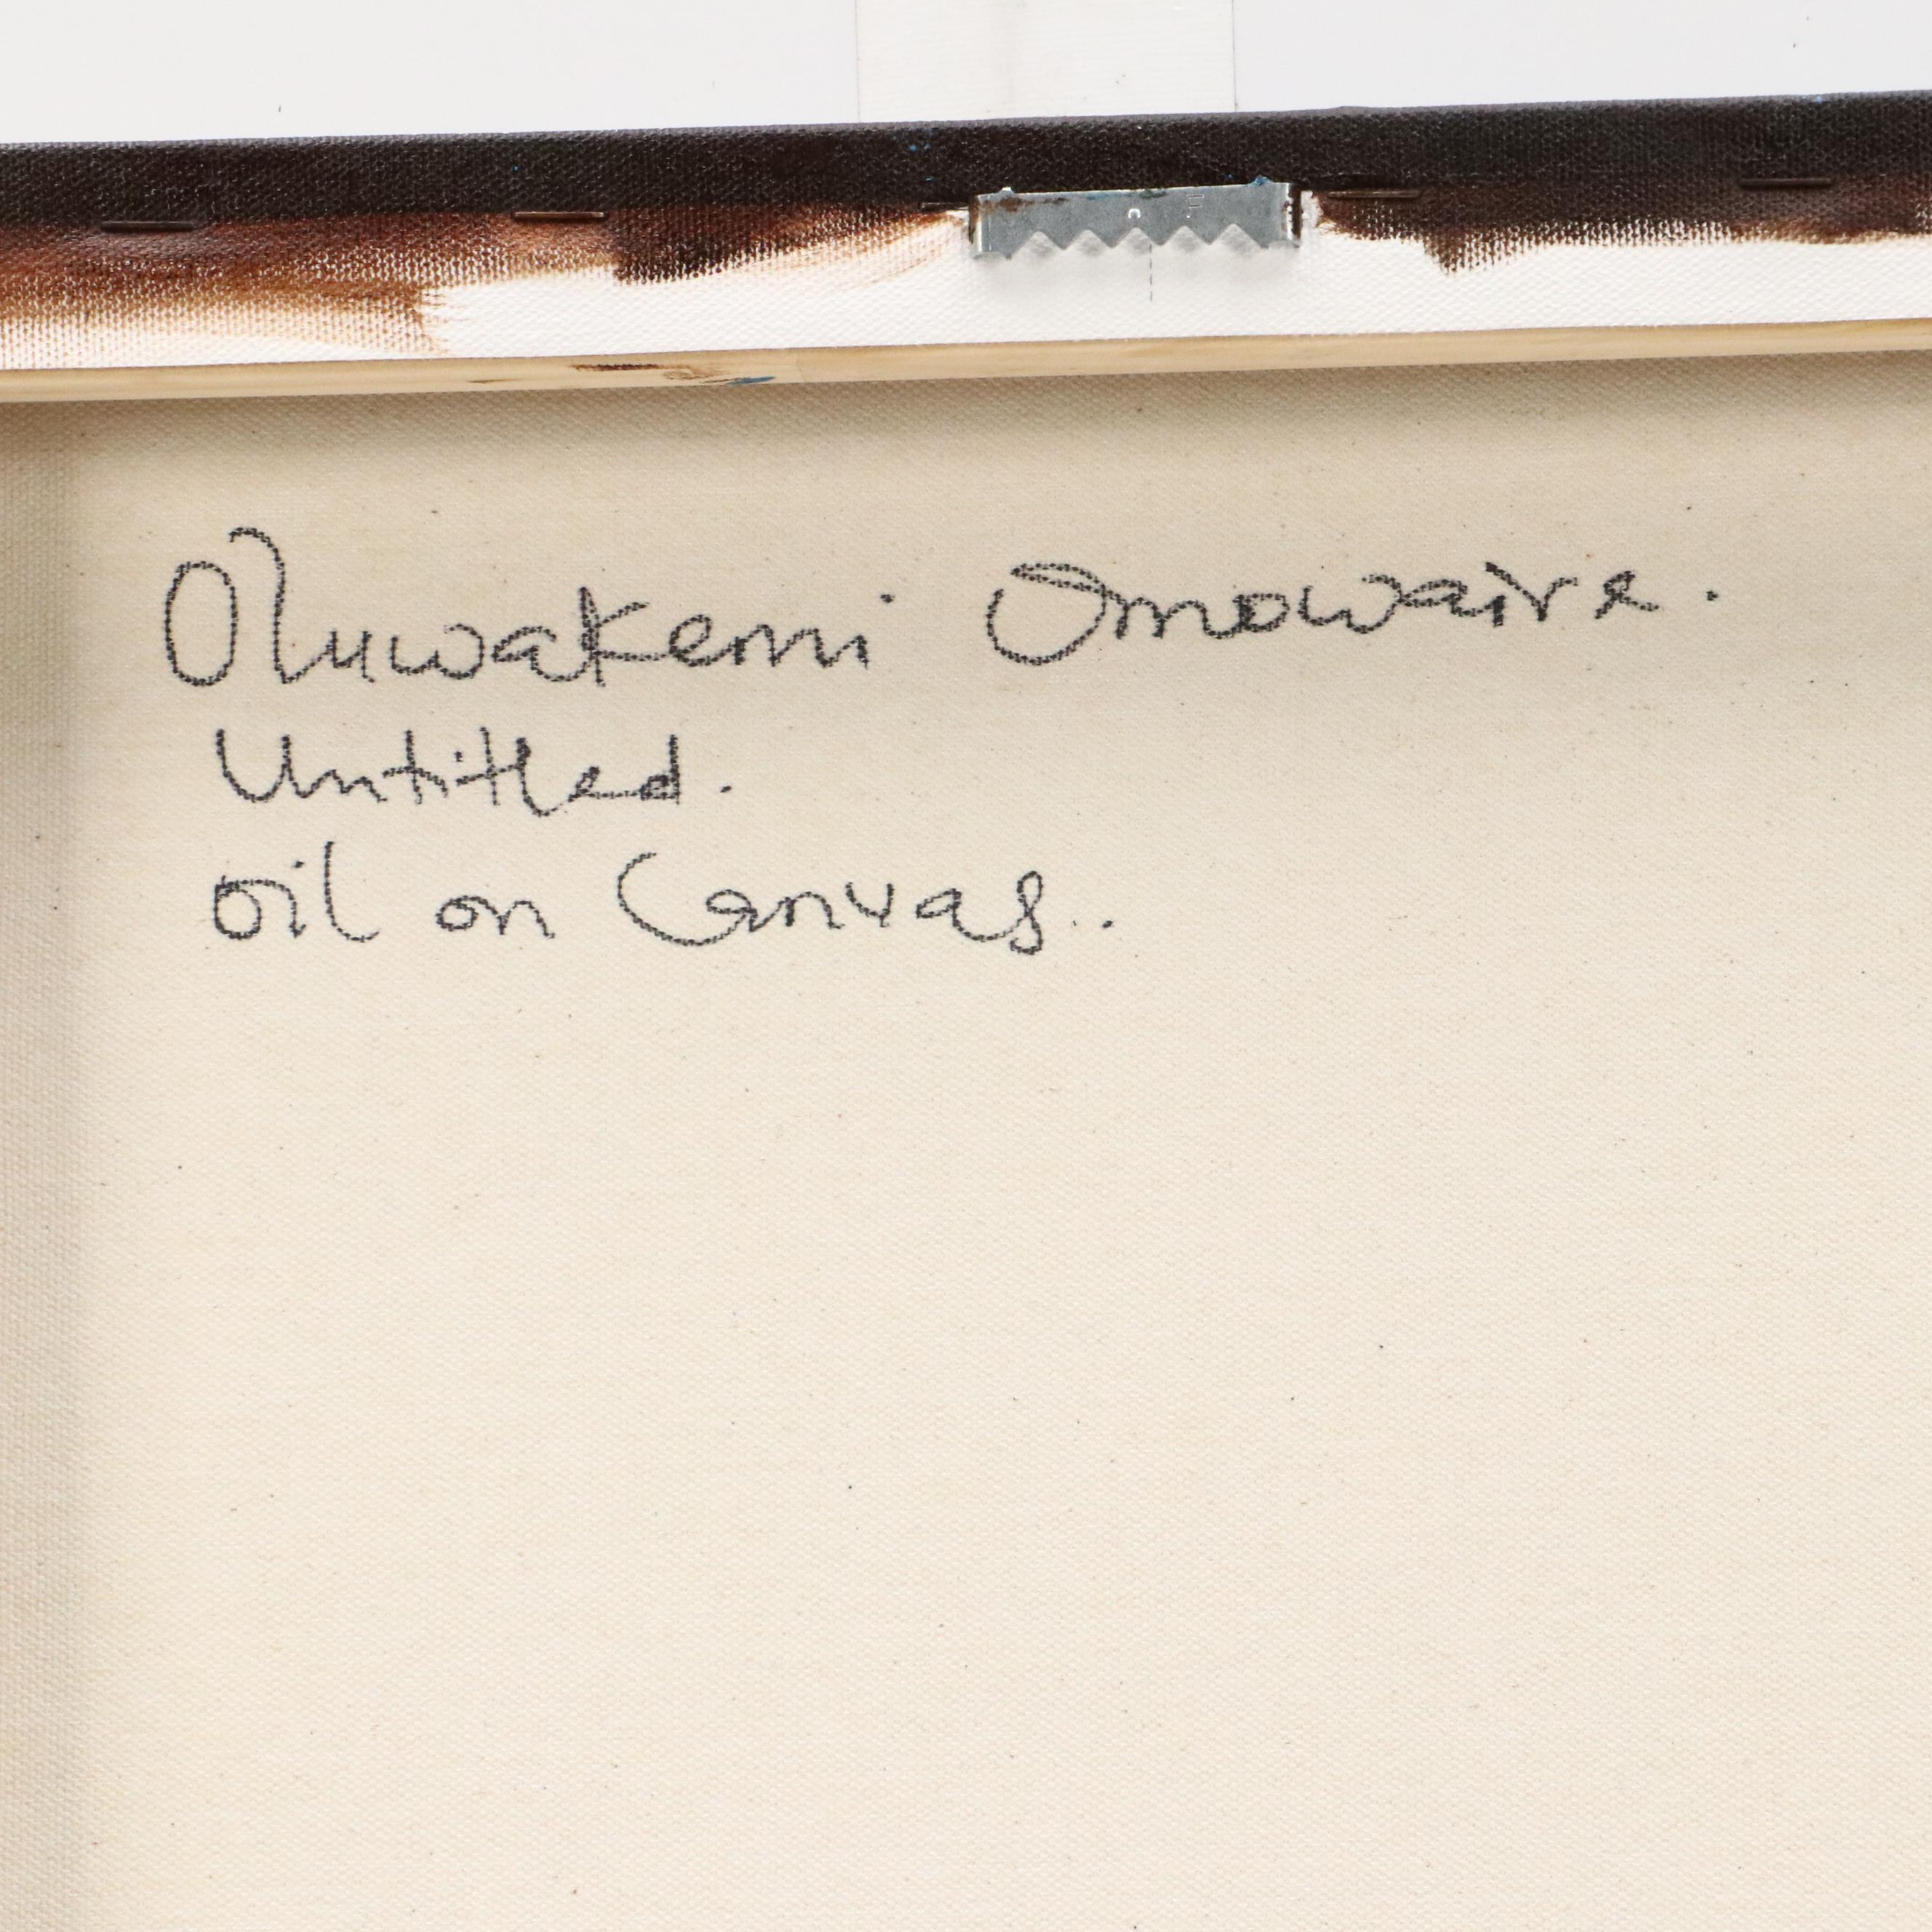 Oluwakemi Omowaire.
Untitled.
Oil on Canvas..